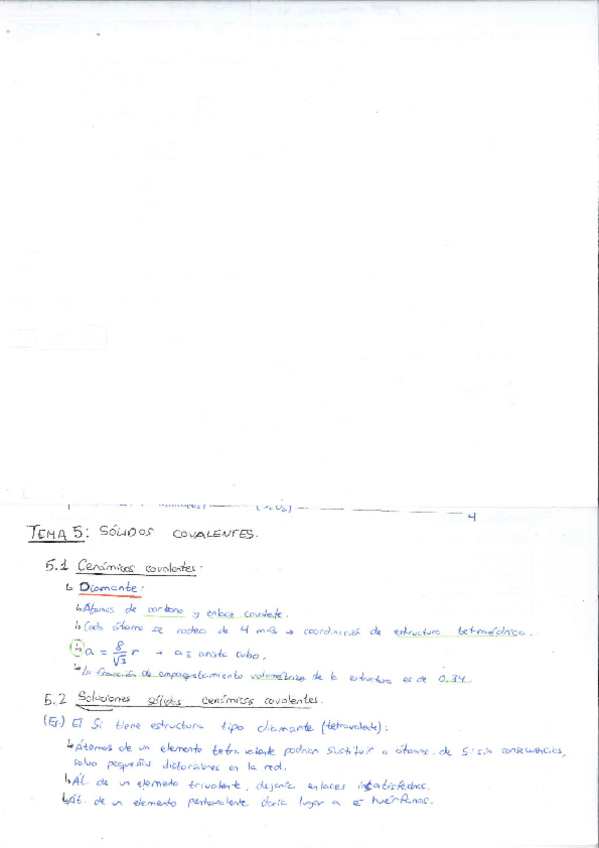 4
TEMA 5: SÓLIDOS COVALENTES.
5.1 Cerámicas covalentes:
↳ Diamante:
↳ Átomos de carbono y enlace covalente.
↳ Cada átomo se rodea de 4 más → coordinación de estructura tetraédrica.
↳ a = 8/√3 r → a ≡ arista cubo.
↳ La fracción de empaquetamiento volumétrico de la estructura es de 0,34.
5.2 Soluciones sólidas cerámicas covalentes.
(Ej.) El Si tiene estructura tipo diamante (tetravalente):
↳ Átomos de un elemento tetravalente podrían sustituir a átomos de Si sin consecuencias,
salvo pequeñas distorsiones en la red.
↳ Át. de un elemento trivalente, dejaría enlaces insatisfechos.
↳ Át. de un elemento pentavalente daría lugar a e⁻ huérfanos.